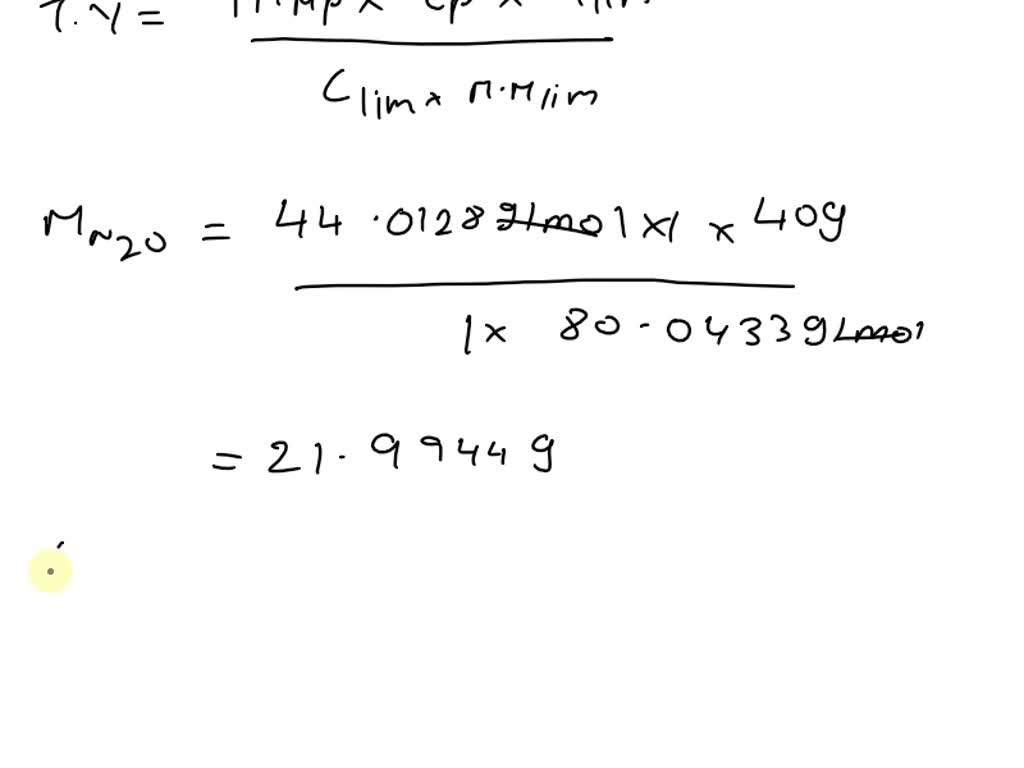 T.Y =
C lim x M.M lim
M N2O = 44.0128 g/mol x 1 x 40g
1 x 80.0433 g/mol
= 21.9944 g